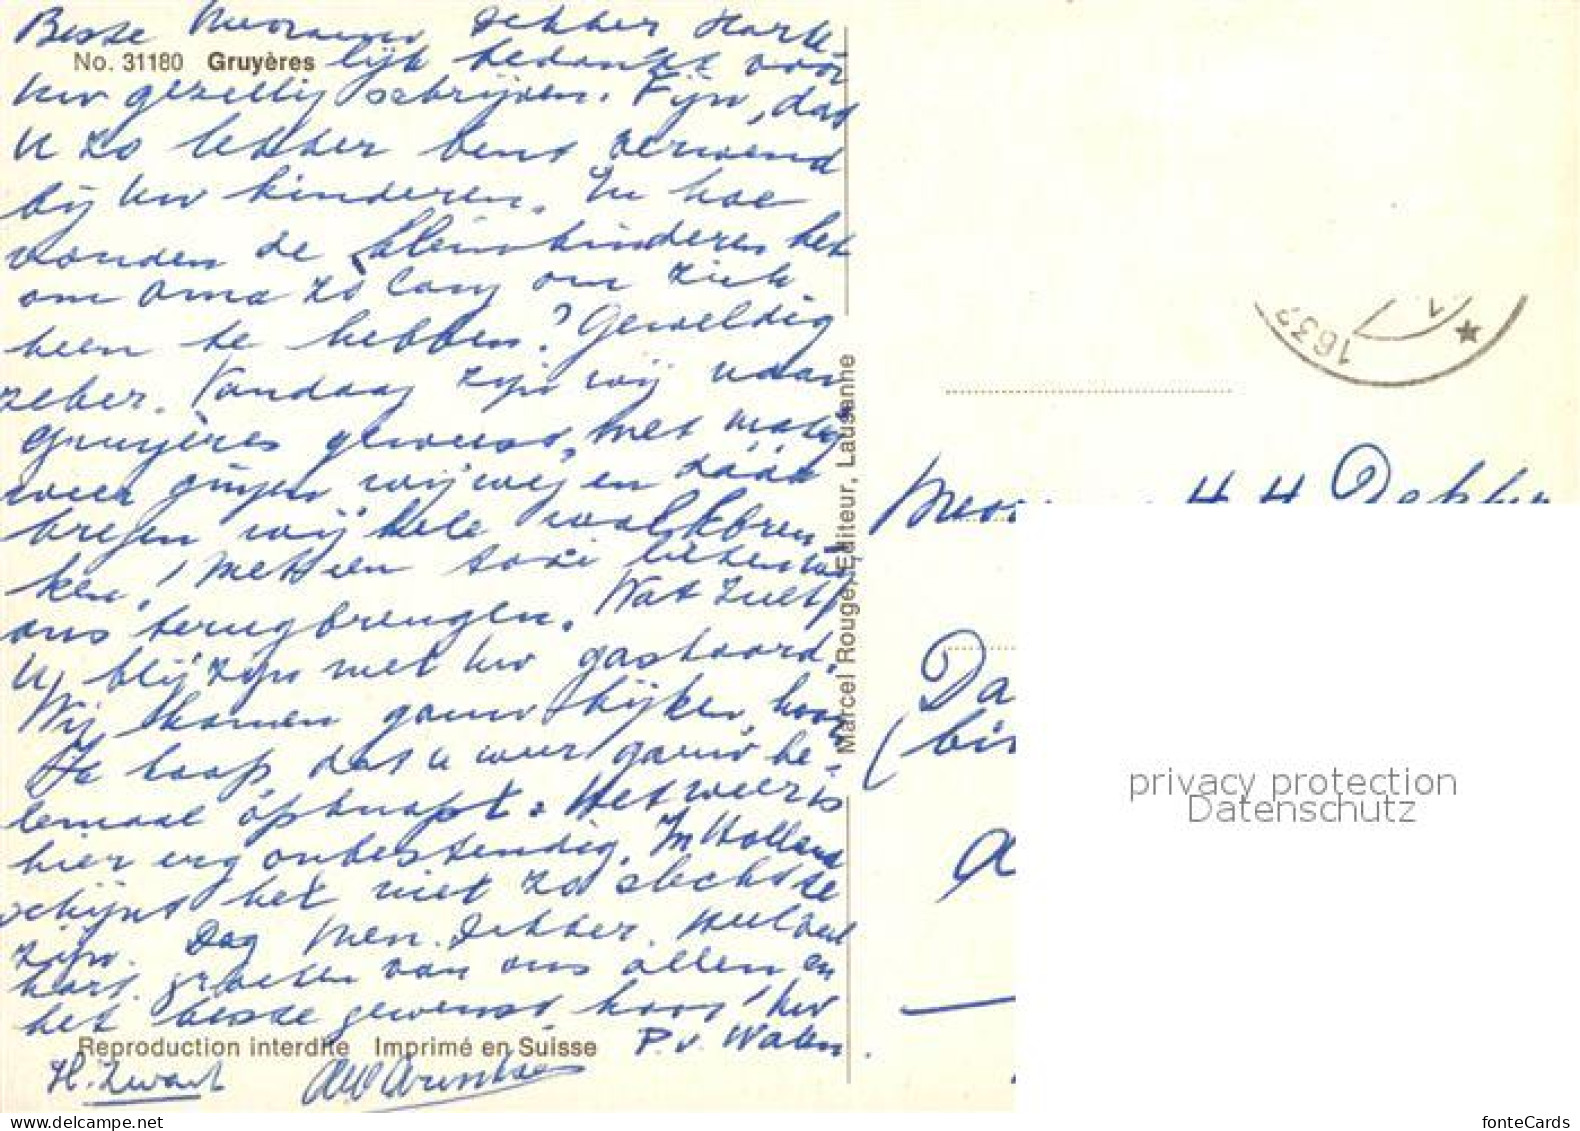 Beste Mevrouw Dekker Harte-
No. 31180 Gruyères
lijk bedankt voor
Uw gezellig schrijven. Fijn, dat
U zo lekker bent verwend
bij Uw kinderen. En hoe
vonden de kleinkinderen het
om Oma zo lang om zich
heen te hebben? Geweldig
zeker. Vandaag zijn wij naar
Gruyères geweest, met
weer gingen wij
kregen wij hele
ken! Met een taxi lieten we
ons terugbrengen. Wat zult
U blij zijn met Uw
Wij komen gauw kijken, hoor
Ik hoop dat u weer gauw he-
lemaal opknapt. Het weer is
hier erg onbestendig. In Holland
schijnt het niet zo slecht te
zijn. Dag Mevr. Dekker. Heel veel
hart. groeten van ons allen en
het beste gewenst hoor! Uw
P. v. Walen.
Reproduction interdite Imprimé en Suisse
H. Zwart
Marcel Rouge, Editeur, Lausanne
1632
H. H. Dekker
Da
(bij
privacy protection
Datenschutz
fonteCards